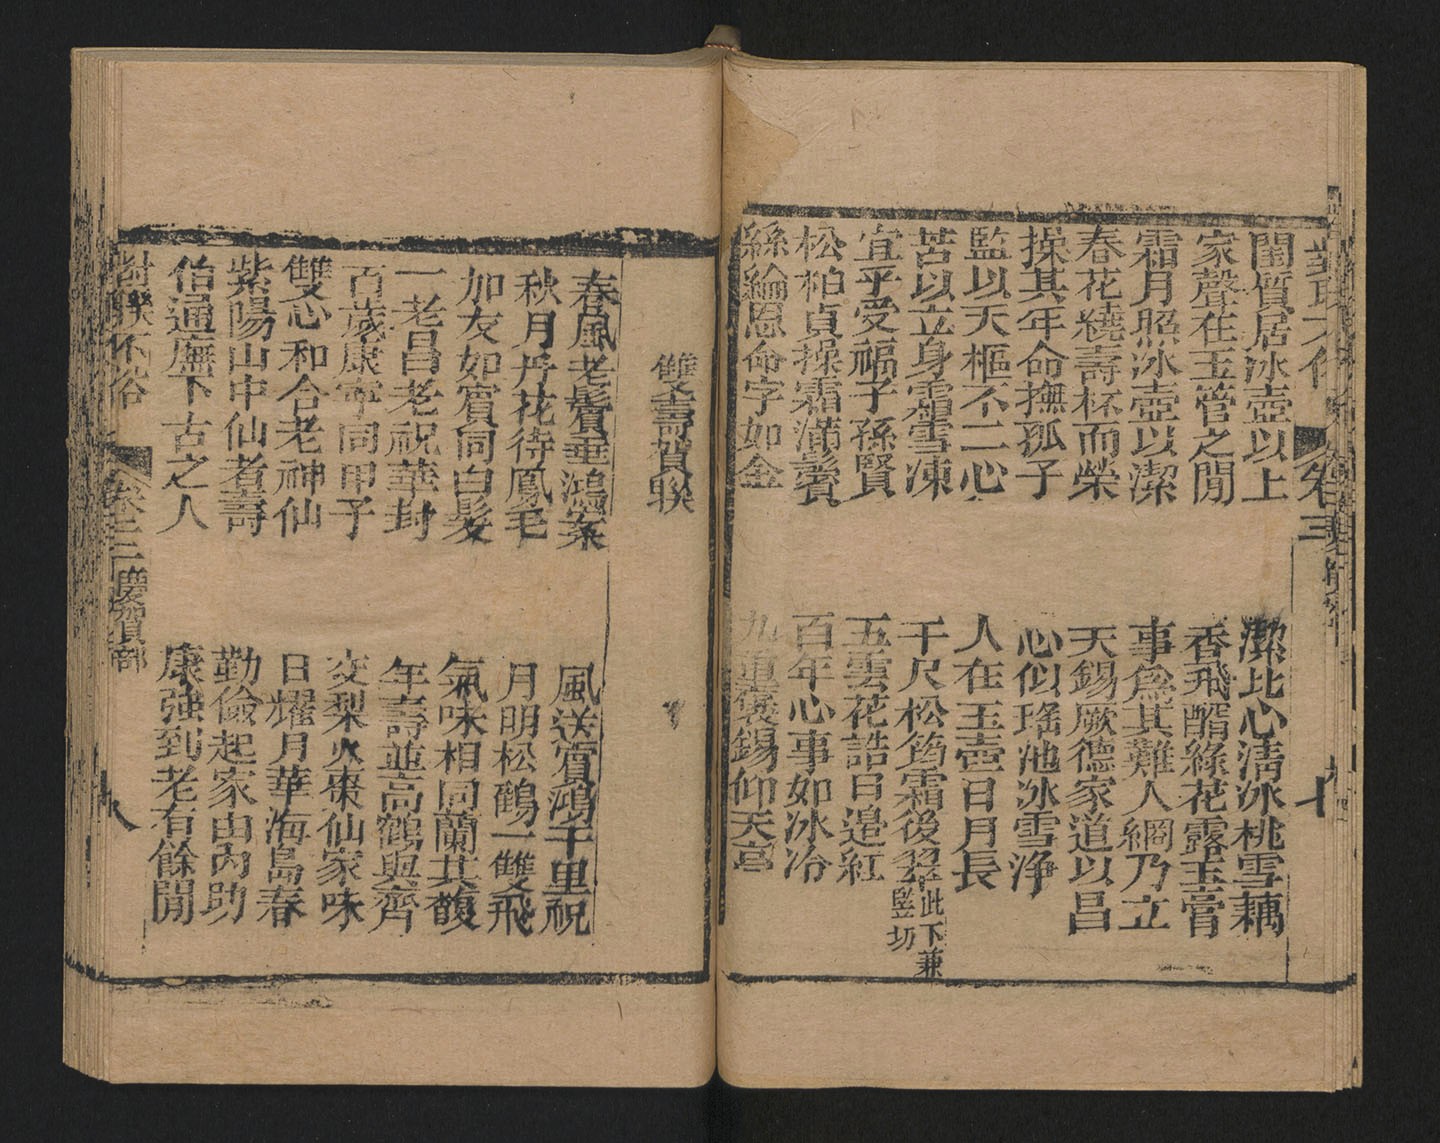 對聯不俗 卷三 七
閨質居冰壺以上
潔比心清冰桃雪藕
家聲在玉管之間
香飛醑綠花露玉膏
霜月照冰壺以潔
事爲其難人綱乃立
春花繞壽杯而榮
天錫厥德家道以昌
操其年命撫孤子
心似瑤池冰雪浄
監以天樞不二心
人在玉壺日月長
苦以立身霜雪凍
千尺松筠霜後翠 此下兼竪坊
宜乎受福子孫賢
五雲花誥日邉紅
松柏貞操霜滿鬢
百年心事如冰冷
絲綸恩命字如金
九重襃錫仰天高
雙壽賀聮
春風老鬢垂鴻案
風送賓鴻千里祝
秋月丹花待鳳毛
月明松鶴一雙飛
加友如賓同白髮
氣味相同蘭其馥
一老昌老祝華封
年壽並高鶴與齊
百歲康寧同甲子
交梨火棗仙家味
雙心和合老神仙
日耀月華海島春
紫陽山中仙者壽
勤儉起家由内助
伯通廡下古之人
康強到老有餘閒
對聯不俗 卷三 慶賀部 八